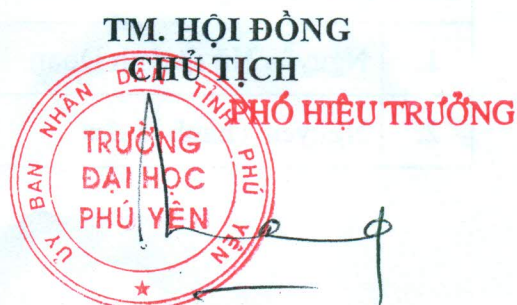 TM. HỘI ĐỒNG
CHỦ TỊCH
PHÓ HIỆU TRƯỞNG
ỦY BAN NHÂN DÂN TỈNH PHÚ YÊN
TRƯỜNG
ĐẠI HỌC
PHÚ YÊN